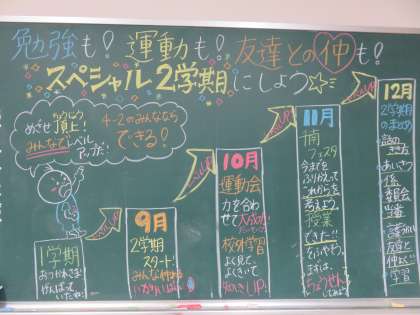 勉強も！運動も！友達との仲も！
スペシャル2学期にしよう☆
めざせ頂上！
ちょうじょう
みんなでレベル
アップだ！
4-2のみんななら
できる！
1学期
おつかれさま！
がんばって
いたね！
UP
9月
2学期
スタート！
UP
10月
運動会
力を合わ
せて
校外学習
よく見て
よくきいて
UP!
11月
楠
フェスタ
今までを
ふりかえって
これからを
考えよう
授業
まずは、
ちょうせん
12月
2学期の
まとめ
あいさつ
係
委員会
当番
友達と
仲よく
学習